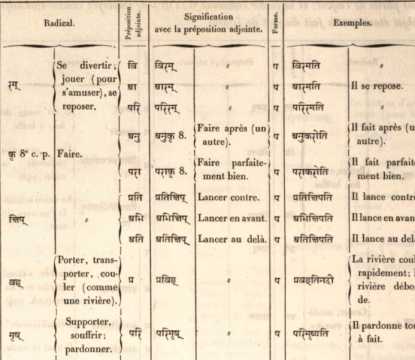 Radical. Préposition adjointe. Signification avec la préposition adjointe. Forme. Exemples.
रम् Se divertir, jouer (pour s'amuser), se reposer.
वि विरम् " प विरमति
आ आरम् " प आरमति Il se repose.
परि परिरम् " प परिरमति
कृ 8ᵉ c. p. Faire.
अनु अनुकृ 8. Faire après (un autre). प अनुकरोति Il fait après (un autre).
परा पराकृ 8. Faire parfaitement bien. प पराकरोति Il fait parfaite ment bien.
क्षिप् "
प्रति प्रतिक्षिप् Lancer contre. प प्रतिक्षिपति Il lance contre
अभि अभिक्षिप् Lancer en avant. प अभिक्षिपति Il lance en avan
अति अतिक्षिप् Lancer au delà. प अतिक्षिपति Il lance au del
वह् Porter, transporter, couler (comme une rivière). प्र प्रवह् " प प्रवहतिनदी La rivière coul rapidement; rivière débo de.
मृष् Supporter, souffrir; pardonner. परि परिमृष् " प परिमृष्यति Il pardonne to à fait.